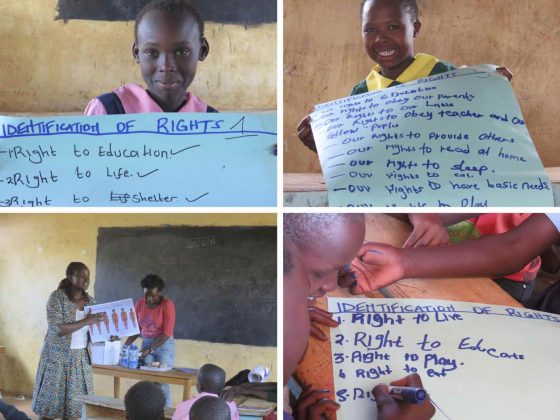 IDENTIFICATION OF RIGHTS 1
- 1 Right to Education ✓
- 2 Right to Life. ✓
- 3 Right to Shelter. ✓
to Education
to Obey Our Parents
Our Rights to Our Laws
Our Rights to Obey teacher and Our
fellow Pupils
- Our Rights to Provide Others
- Our Rights to Read at home
- Our Rights to Sleep.
- Our rights to eat.
- Our Rights to have basic needs
to Play
IDENTIFICATION OF RIGHTS
1. Right to Live
2. Right to Educats
3. Right to Play.
4 Right to eat
5. Rig